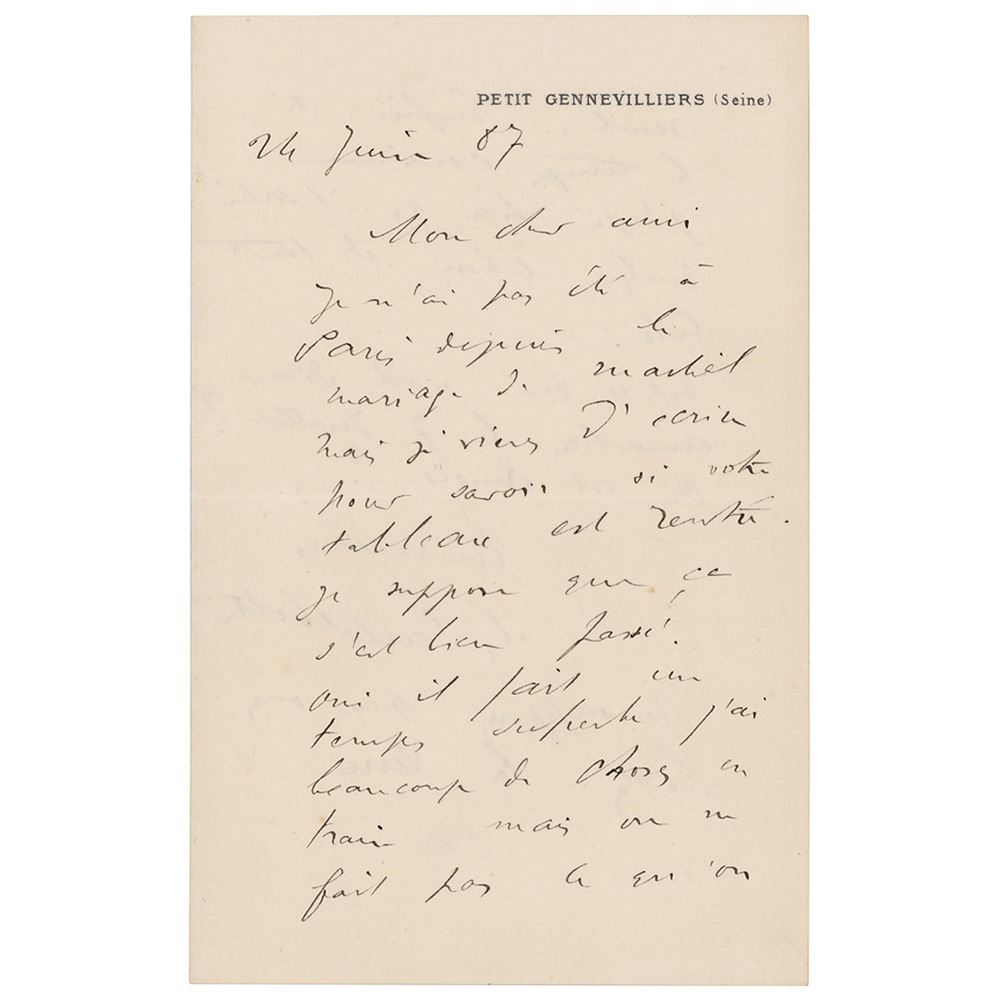 PETIT GENNEVILLIERS (Seine)
24 Juin 87
Mon cher ami
Je n'ai pas été à
Paris depuis le
mariage de Martial
mais je viens d'écrire
pour savoir si votre
tableau est rentré.
je suppose que ça
s'est bien passé.
oui il fait un
temps superbe j'ai
beaucoup de choses en
train mais on ne
fait pas ce qu'on